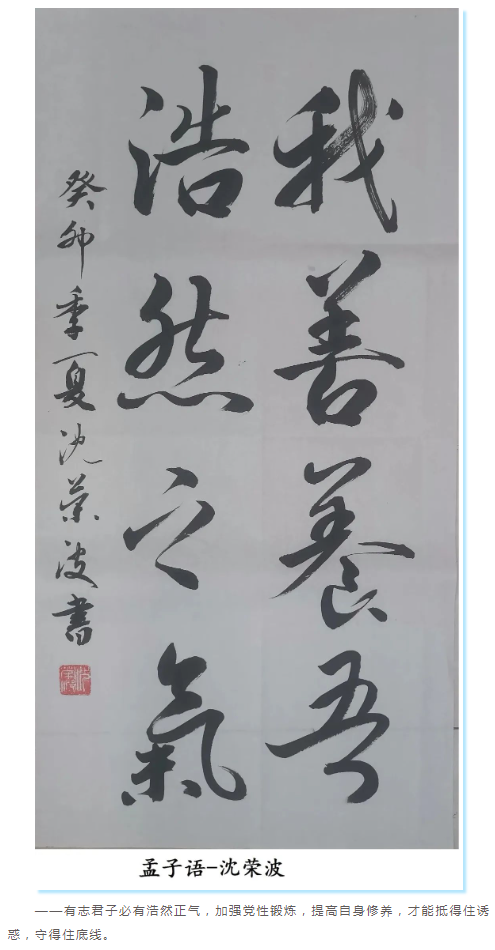 我善養吾
浩然之氣
癸卯季夏沈荣波書
孟子语-沈荣波
——有志君子必有浩然正气，加强党性锻炼，提高自身修养，才能抵得住诱
惑，守得住底线。